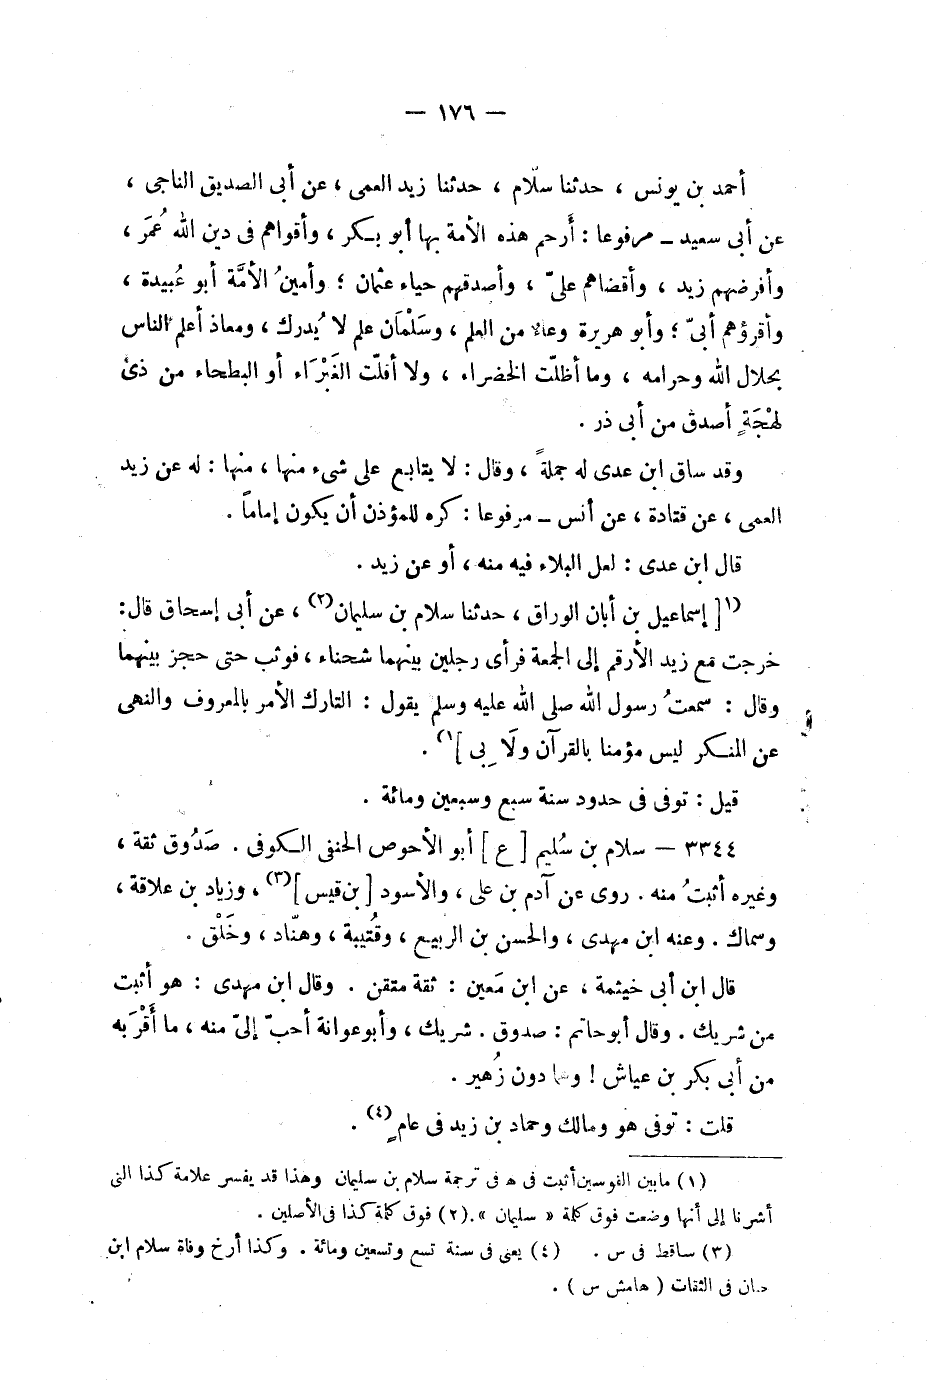 — ١٧٦ —
أحمد بن يونس ، حدثنا سلّام ، حدثنا زيد العمى ، عن أبى الصديق الناجى ،
عن أبى سعيد ـ مرفوعا : أَرحم هذه الأمة بها أبو بكر ، وأقواهم فى دين الله عُمَر ،
وأفرضهم زيد ، وأقضاهم علىّ ، وأصدقهم حياء عثمان ؛ وأمينُ الأمَّة أبو عُبيدة ،
وأقرؤهم أبىّ ؛ وأبو هريرة وعاء من العلم ، وسَلْمَان علم لا يُدرك ، ومعاذ أعلم الناس
بحلال الله وحرامه ، وما أظلّت الخضراء ، ولا أقلّت الغَبْرَاء أو البطحاء من ذى
لَهْجَةٍ أصدق من أبى ذر .
وقد ساق ابن عدى له جملةً ، وقال : لا يتابع على شىء منها ، منها : له عن زيد
العمى ، عن قتادة ، عن أنس ـ مرفوعا : كره للمؤذن أن يكون إماماً .
قال ابن عدى : لعل البلاء فيه منه ، أو عن زيد .
(١[ إسماعيل بن أبان الوراق ، حدثنا سلام بن سليمان(٢) ، عن أبى إسحاق قال :
خرجت مع زيد الأرقم إلى الجمعة فرأى رجلين بينهما شحناء ، فوثب حتى حجز بينهما
وقال : سمعتُ رسول الله صلى الله عليه وسلم يقول : التارك الأمر بالمعروف والنهى
عن المنكر ليس مؤمنا بالقرآن ولَا بِى ]١) .
قيل : توفى فى حدود سنة سبع وسبعين ومائة .
٣٣٤٤ — سلام بن سُليم [ ع ] أبو الأحوص الحنفى الكوفى . صَدُوق ثقة ،
وغيره أثبتُ منه . روى عن آدم بن على ، والأسود [ بن قيس ](٣) ، وزياد بن علاقة ،
وسماك . وعنه ابن مهدى ، والحسن بن الربيع ، وقُتيبة ، وهنّاد ، وخَلْق .
قال ابن أبى خيثمة ، عن ابن مَعين : ثقة متقن . وقال ابن مهدى : هو أثبت
من شريك . وقال أبوحاتم : صدوق . شريك ، وأبوعوانة أحبّ إلىّ منه ، ما أَقْرَبه
من أبى بكر بن عياش ! وهما دون زُهير .
قلت : توفى هو ومالك وحماد بن زيد فى عام(٤) .
(١) مابين القوسين أثبت فى ه فى ترجمة سلام بن سليمان وهذا قد يفسر علامة كذا التى
أشرنا إلى أنها وضعت فوق كلمة « سليمان » . (٢) فوق كلمة كذا فى الأصلين .
(٣) ساقط فى س . (٤) يعنى فى سنة تسع وتسعين ومائة . وكذا أرخ وفاة سلام ابن
حبان فى الثقات ( هامش س ) .